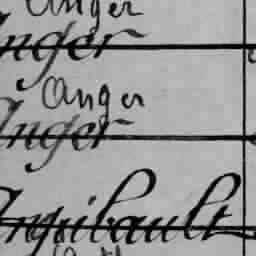 Anger
Anger
Anger
Anger
Anguibault